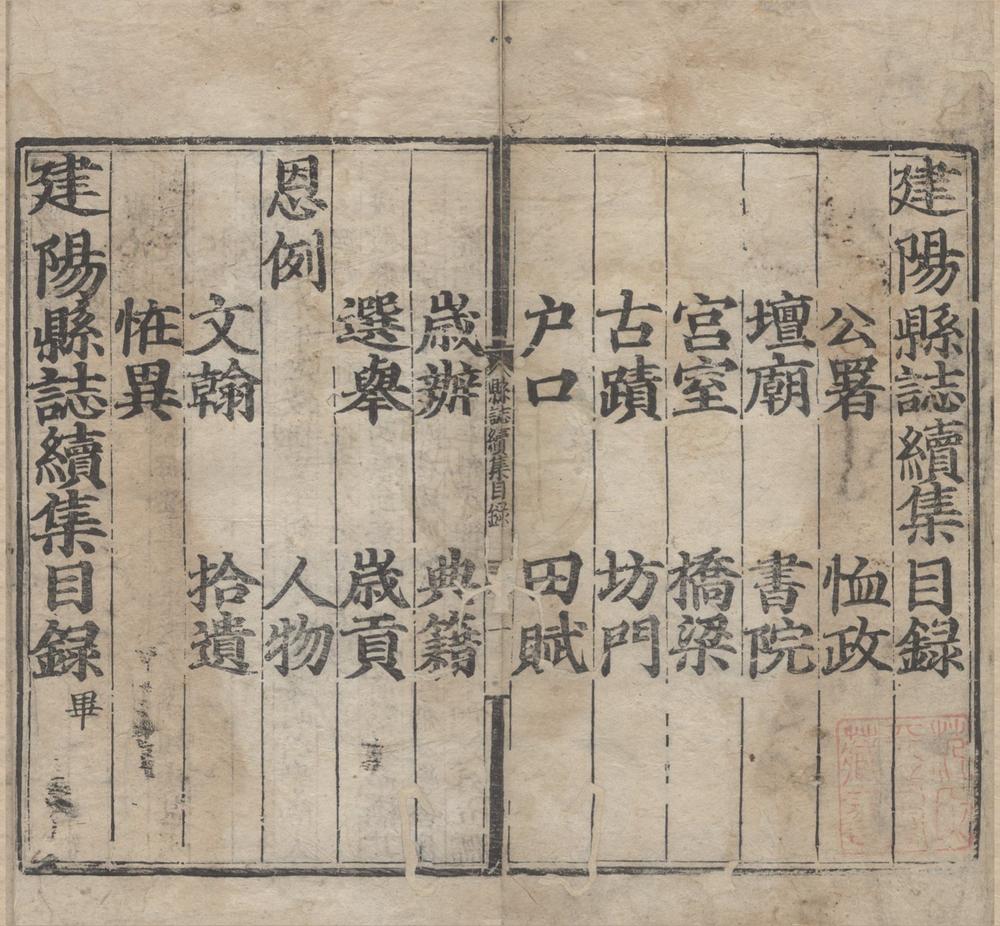 建陽縣誌續集目録
公署 恤政
壇廟 書院
宫室 橋梁
古蹟 坊門
户口 田賦
縣誌續集目録
一
歲辦 典籍
選舉 歲貢
恩例 人物
文翰 拾遺
恠異
建陽縣誌續集目録畢